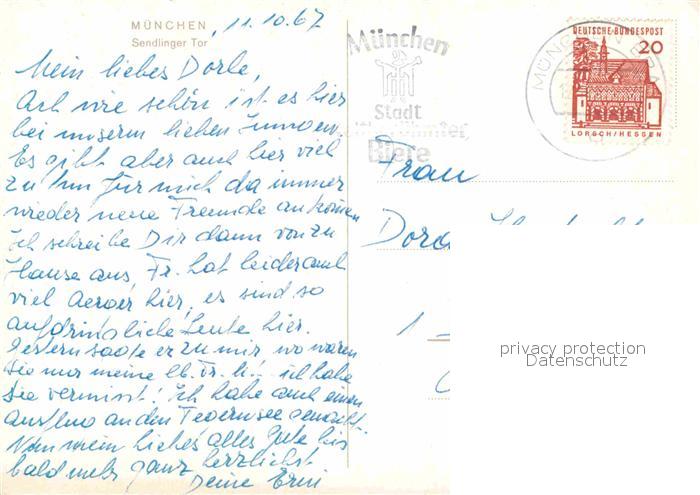 MÜNCHEN
Sendlinger Tor
11.10.67
Mein liebes Dorle,
Ach wie schön ist es hier
bei unserm lieben Jungen.
Es gibt aber auch hier viel
zu tun für mich da immer
wieder neue Fremde ankommen
Ich schreibe Dir dann von zu
Hause aus, Fr. hat leider auch
viel Aerger hier, es sind so
aufdringliche Leute hier.
Gestern sagte er zu mir, wo waren
Sie nur meine lb. Fr. H. ich habe
Sie vermisst! Ich habe auch einen
Ausflug an den Tegernsee gemacht.
Nun mein liebes alles Gute bis
bald mehr ganz herzlichst
Deine Erni
München
Stadt
weltberühmter
Biere
MÜNCHEN
DEUTSCHE BUNDESPOST
20
LORSCH/HESSEN
Frau
privacy protection
Datenschutz